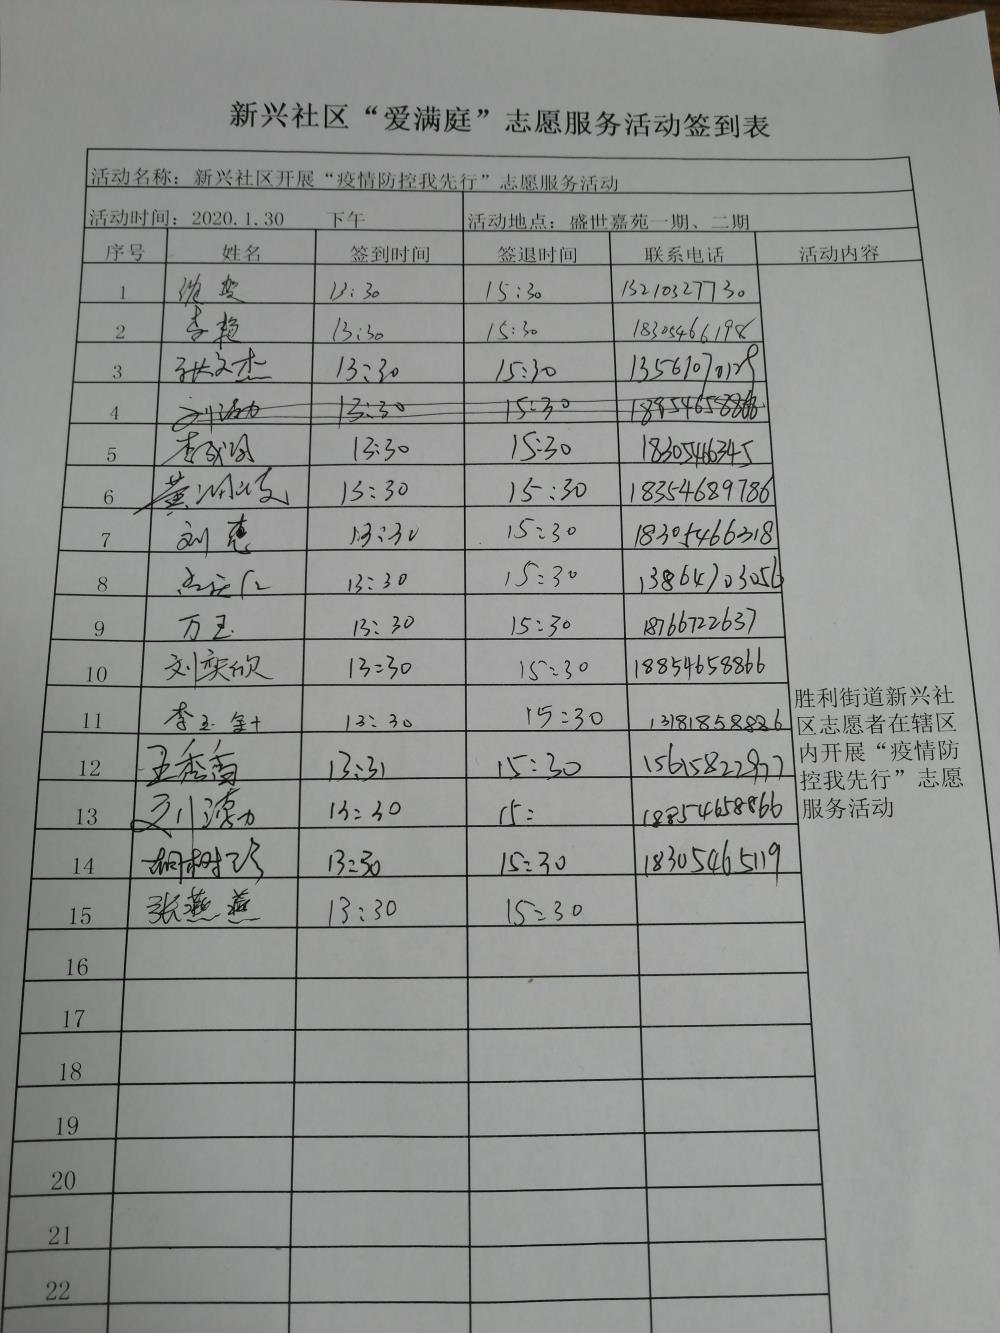 新兴社区“爱满庭”志愿服务活动签到表
活动名称：新兴社区开展“疫情防控我先行”志愿服务活动
活动时间：2020.1.30 下午 活动地点：盛世嘉苑一期、二期
序号 姓名 签到时间 签退时间 联系电话 活动内容
1 13:30 15:30 13210327730
2 李艳 13:30 15:30 1830546619
3 张文杰 13:30 15:30
4 13:30 15:30 18854658866
5 13:30 15:30 1830546345
6 黄 13:30 15:30 18354689786
7 刘惠 13:30 15:30 18305466318
8 13:30 15:30 13864703056
9 万玉 13:30 15:30 18766722637
10 刘奕欣 13:30 15:30 18854658866
11 李玉 13:30 15:30 13181858886
12 王秀香 13:31 15:30 15615822977
13 13:30 15: 18854658866
14 胡树珍 13:30 15:30 18305465119
15 张燕燕 13:30 15:30
胜利街道新兴社
区志愿者在辖区
内开展“疫情防
控我先行”志愿
服务活动
16
17
18
19
20
21
22